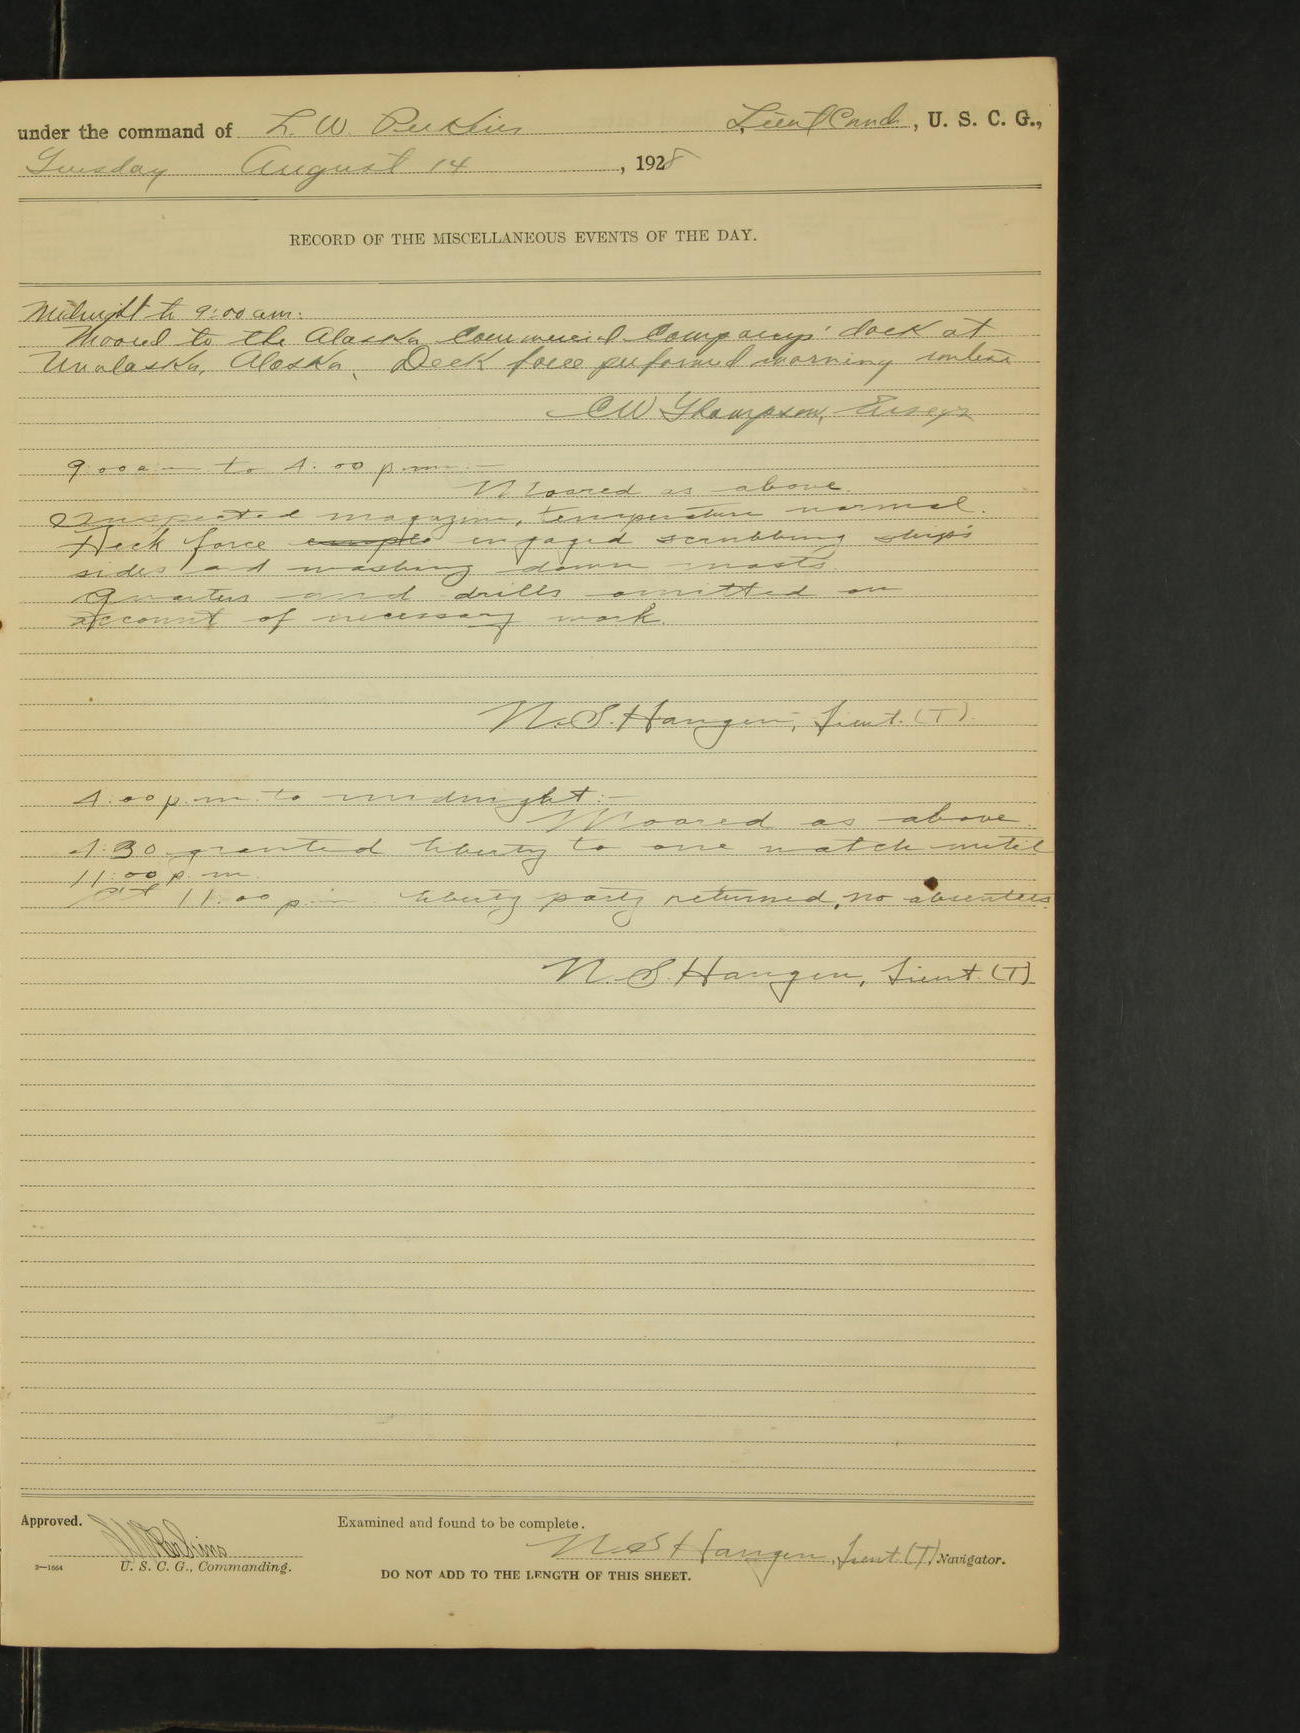 under the command of L. W. Perkins Lieut Comd., U. S. C. G.,
Tuesday August 14, 1928
RECORD OF THE MISCELLANEOUS EVENTS OF THE DAY.
Midnight to 9:00 a.m:
Moored to the Alaska Commercial Company's dock at
Unalaska, Alaska. Deck force performed morning routine
C W Thompson, Ensign
9:00 a.m. to 4:00 p.m.:—
Moored as above.
Inspected magazine, temperature normal.
Deck force engaged scrubbing ship's
sides and washing down masts.
Quarters and drills omitted on
account of necessary work.
N. S. Haugen, Lieut. (T)
4:00 p.m. to midnight:—
Moored as above.
4:30 granted liberty to one watch until
11:00 p.m.
At 11:00 p.m. liberty party returned, no absentees
N. S. Haugen, Lieut. (T)
Approved.
Examined and found to be complete.
L W Perkins
N. S. Haugen, Lieut (T) Navigator.
2—1664
U. S. C. G., Commanding.
DO NOT ADD TO THE LENGTH OF THIS SHEET.